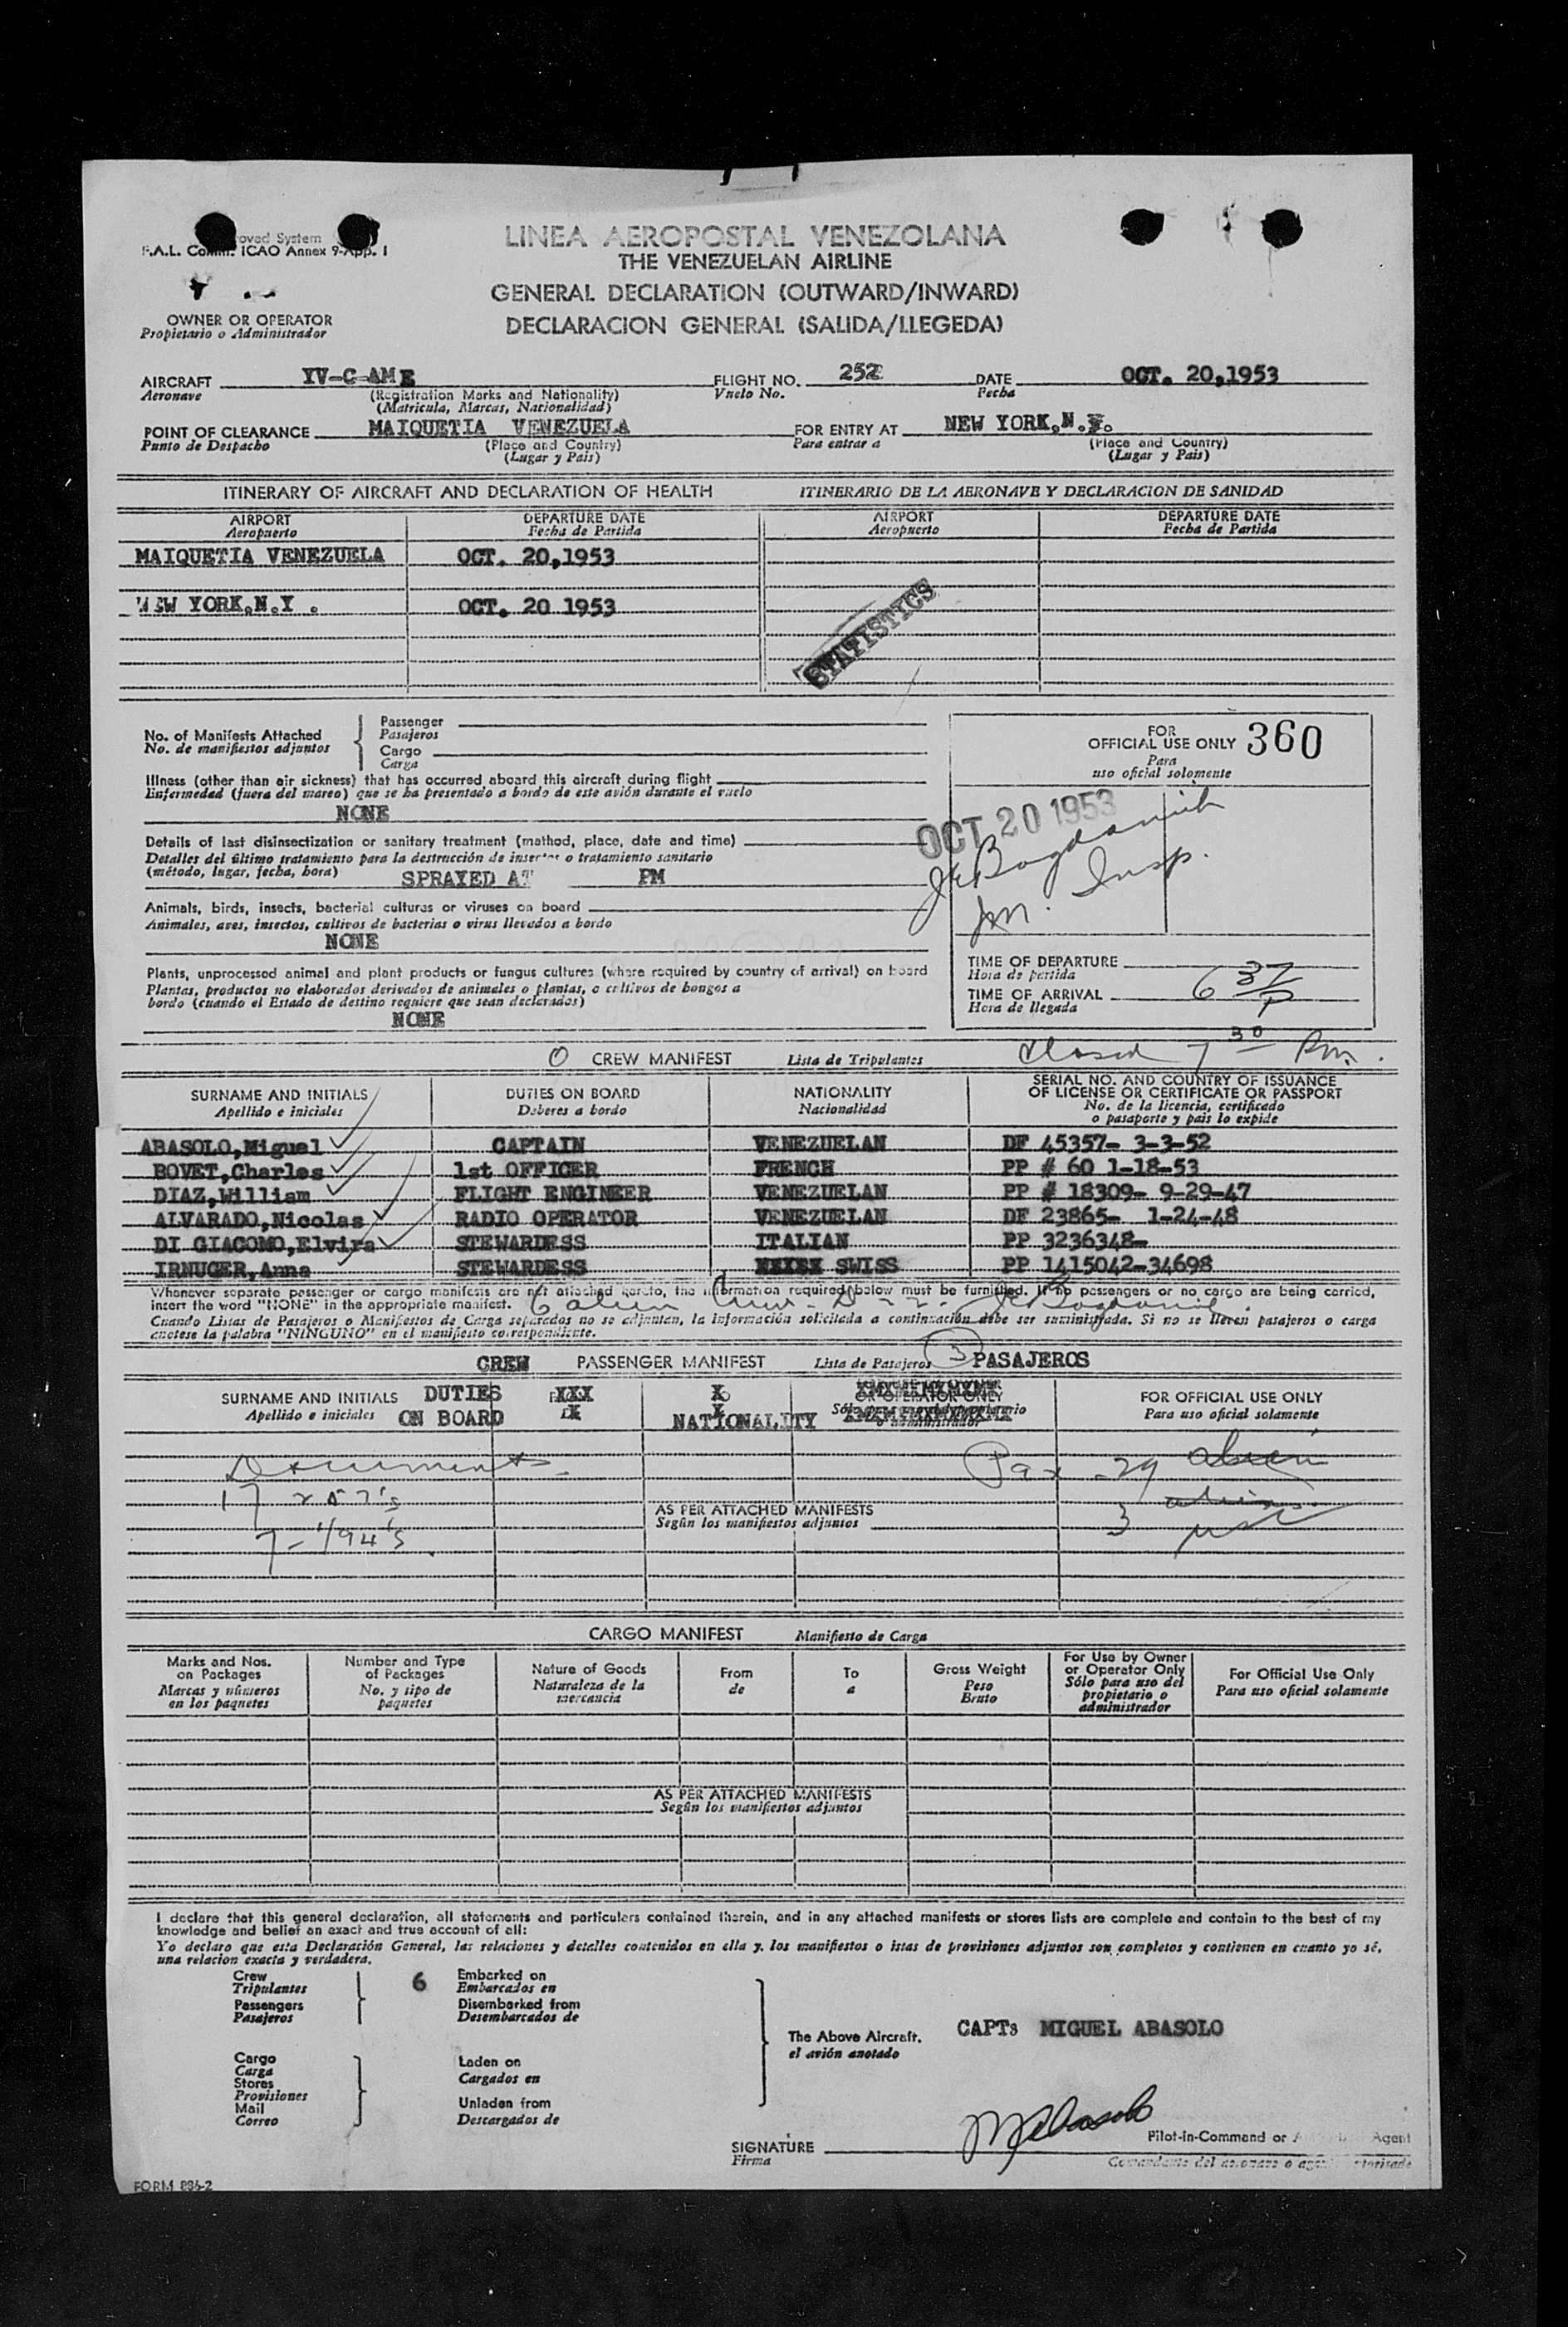 roved System
F.A.L. Comm. ICAO Annex 9-App. I
LINEA AEROPOSTAL VENEZOLANA
THE VENEZUELAN AIRLINE
GENERAL DECLARATION (OUTWARD/INWARD)
DECLARACION GENERAL (SALIDA/LLEGEDA)
OWNER OR OPERATOR
Propietario o Administrador
AIRCRAFT YV-C-AME FLIGHT NO. 252 DATE OCT. 20,1953
Aeronave (Registration Marks and Nationality) Vuelo No. Fecha
(Matricula, Marcas, Nacionalidad)
POINT OF CLEARANCE MAIQUETIA VENEZUELA FOR ENTRY AT NEW YORK,N.Y.
Punto de Despacho (Place and Country) Para entrar a (Place and Country)
(Lugar y Pais) (Lugar y Pais)
ITINERARY OF AIRCRAFT AND DECLARATION OF HEALTH ITINERARIO DE LA AERONAVE Y DECLARACION DE SANIDAD
AIRPORT DEPARTURE DATE AIRPORT DEPARTURE DATE
Aeropuerto Fecha de Partida Aeropuerto Fecha de Partida
MAIQUETIA VENEZUELA OCT. 20,1953
NEW YORK,N.Y. OCT. 20 1953
STATISTICS
No. of Manifests Attached
No. de manifiestos adjuntos
Passenger
Pasajeros
Cargo
Carga
FOR
OFFICIAL USE ONLY 360
Para
uso oficial solomente
Illness (other than air sickness) that has occurred aboard this aircraft during flight
Enfermedad (fuera del mareo) que se ha presentado a bordo de este avión durante el vuelo
NONE
OCT 20 1953
Details of last disinsectization or sanitary treatment (method, place, date and time)
Detalles del último tratamiento para la destrucción de insectos o tratamiento sanitario
(método, lugar, fecha, hora) SPRAYED AT PM
Bogdanich
Im. Insp.
Animals, birds, insects, bacterial cultures or viruses on board
Animales, aves, insectos, cultivos de bacterias o virus llevados a bordo
NONE
Plants, unprocessed animal and plant products or fungus cultures (where required by country of arrival) on board
Plantas, productos no elaborados derivados de animales o plantas, o cultivos de hongos a
bordo (cuando el Estado de destino requiere que sean declarados)
NONE
TIME OF DEPARTURE
Hora de partida
TIME OF ARRIVAL 6 37 P
Hora de llegada
closed 7 30 Pm.
O CREW MANIFEST Lista de Tripulantes
SURNAME AND INITIALS DUTIES ON BOARD NATIONALITY SERIAL NO. AND COUNTRY OF ISSUANCE
OF LICENSE OR CERTIFICATE OR PASSPORT
Apellido e iniciales Deberes a bordo Nacionalidad No. de la licencia, certificado
o pasaporte y pais lo expide
ABASOLO,Miguel CAPTAIN VENEZUELAN DF 45357- 3-3-52
BOVET,Charles 1st OFFICER FRENCH PP # 60 1-18-53
DIAZ,William FLIGHT ENGINEER VENEZUELAN PP # 18309- 9-29-47
ALVARADO,Nicolas RADIO OPERATOR VENEZUELAN DF 23865- 1-24-48
DI GIACOMO,Elvira STEWARDESS ITALIAN PP 3236348-
IRNUGER,Anna STEWARDESS SWISS PP 1415042-34698
Whenever separate passenger or cargo manifests are not attached hereto, the information required below must be furnished. If no passengers or no cargo are being carried,
insert the word "NONE" in the appropriate manifest.
6 alien Crew - D-2. Bogdanich
Cuando Listas de Pasajeros o Manifiestos de Carga separados no se adjuntan, la información solicitada a continuación debe ser suministrada. Si no se lleven pasajeros o carga
anotese la palabra "NINGUNO" en el manifiesto correspondiente.
CREW PASSENGER MANIFEST Lista de Pasajeros 3 PASAJEROS
SURNAME AND INITIALS DUTIES XXX X FOR OFFICIAL USE ONLY
Apellido e iniciales ON BOARD NATIONALITY Para uso oficial solamente
Documents Pax - 29 alien
17 257's
AS PER ATTACHED MANIFESTS
Según los manifiestos adjuntos
3 usc
7 - I/94's
CARGO MANIFEST Manifiesto de Carga
Marks and Nos.
on Packages
Marcas y números
en los paquetes
Number and Type
of Packages
No. y tipo de
paquetes
Nature of Goods
Naturaleza de la
mercancia
From
de
To
a
Gross Weight
Peso
Bruto
For Use by Owner
or Operator Only
Sólo para uso del
propietario o
administrador
For Official Use Only
Para uso oficial solamente
AS PER ATTACHED MANIFESTS
Según los manifiestos adjuntos
I declare that this general declaration, all statements and particulars contained therein, and in any attached manifests or stores lists are complete and contain to the best of my
knowledge and belief an exact and true account of all:
Yo declaro que esta Declaración General, las relaciones y detalles contenidos en ella y. los manifiestos o istas de provisiones adjuntos son completos y contienen en cuanto yo sé,
una relacion exacta y verdadera.
Crew 6 Embarked on
Tripulantes Embarcados en
Passengers Disembarked from
Pasajeros Desembarcados de
The Above Aircraft. CAPT: MIGUEL ABASOLO
el avión anotado
Cargo Laden on
Carga Cargados en
Stores
Provisiones
Mail Unladen from
Correo Descargados de
MAbasolo
Pilot-in-Command or Agent
SIGNATURE
Firma
Comandante del aeronave o agente autorisado
FORM 886-2